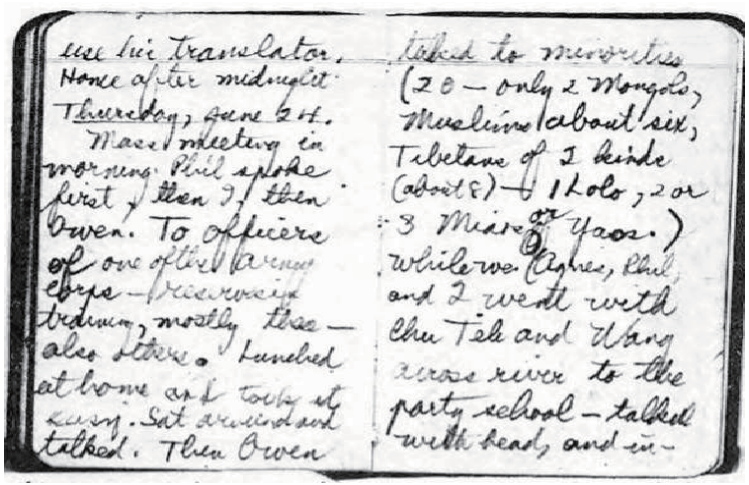 use his translator.
Home after midnight.
Thursday, June 24.
Mass meeting in
morning. Phil spoke
first, then I, then
Owen. To officers
of one of the army
corps — reserves in
training, mostly this —
also others. Lunched
at home and took it
easy. Sat around and
talked. Then Owen
talked to minorities
(20 — only 2 Mongols,
Muslims about six,
Tibetans of 2 kinds
(about 8) — 1 Lolo, 2 or
3 Miaos or Yaos.)
while we (Agnes, Phil,
and I went with
Chu Teh and Wang
across river to the
party school — talked
with head, and in-